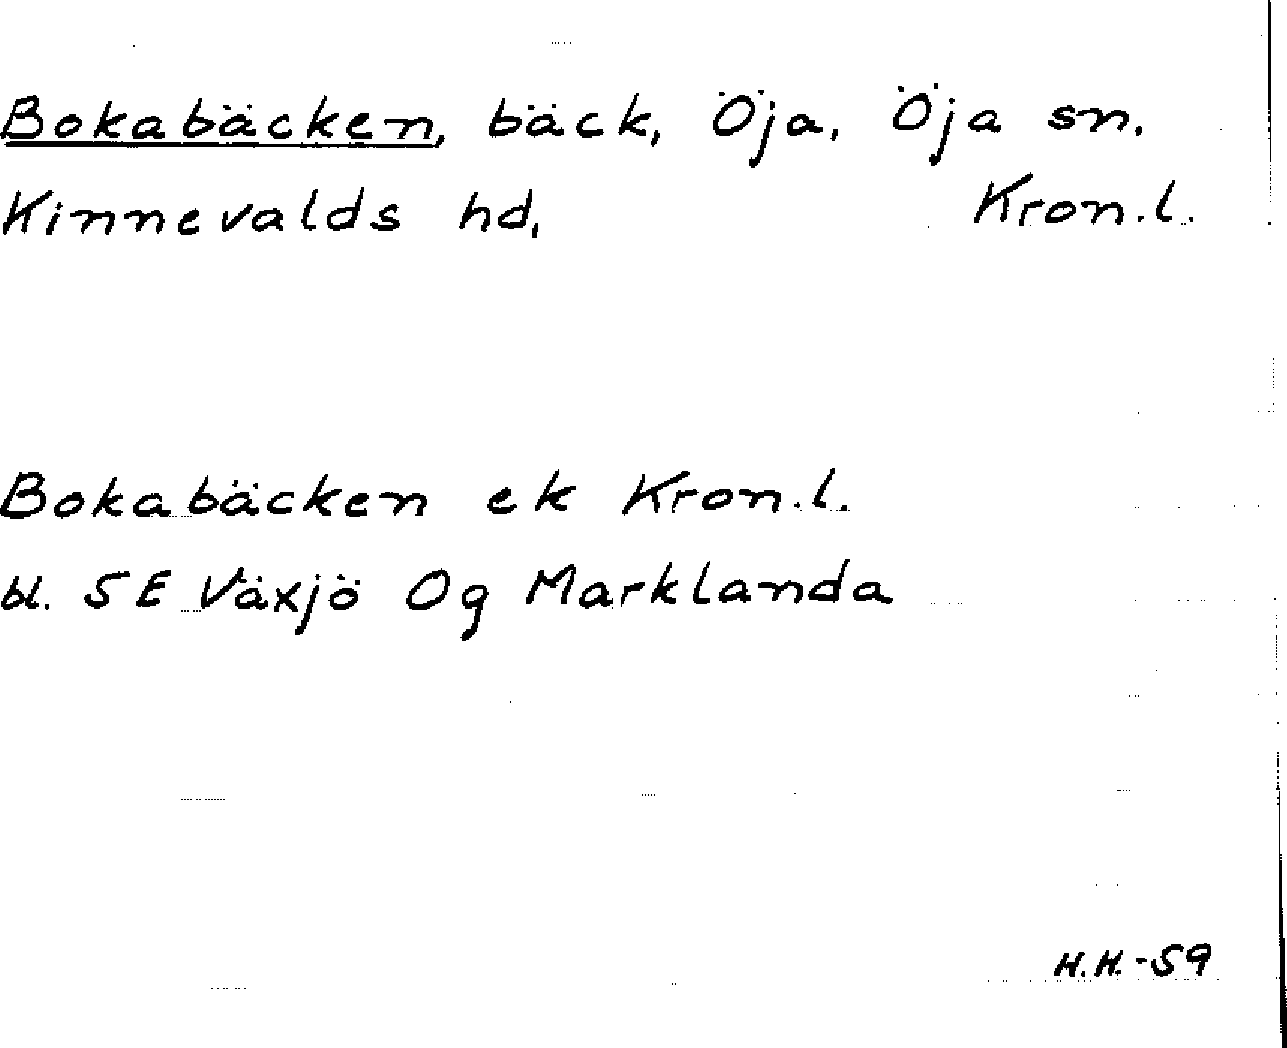 Bokabäcken, bäck, Öja, Öja sn.
Kinnevalds hd, Kron.l.
Bokabäcken ek Kron.l.
bl. 5E Växjö Og Marklanda
H.H.-59